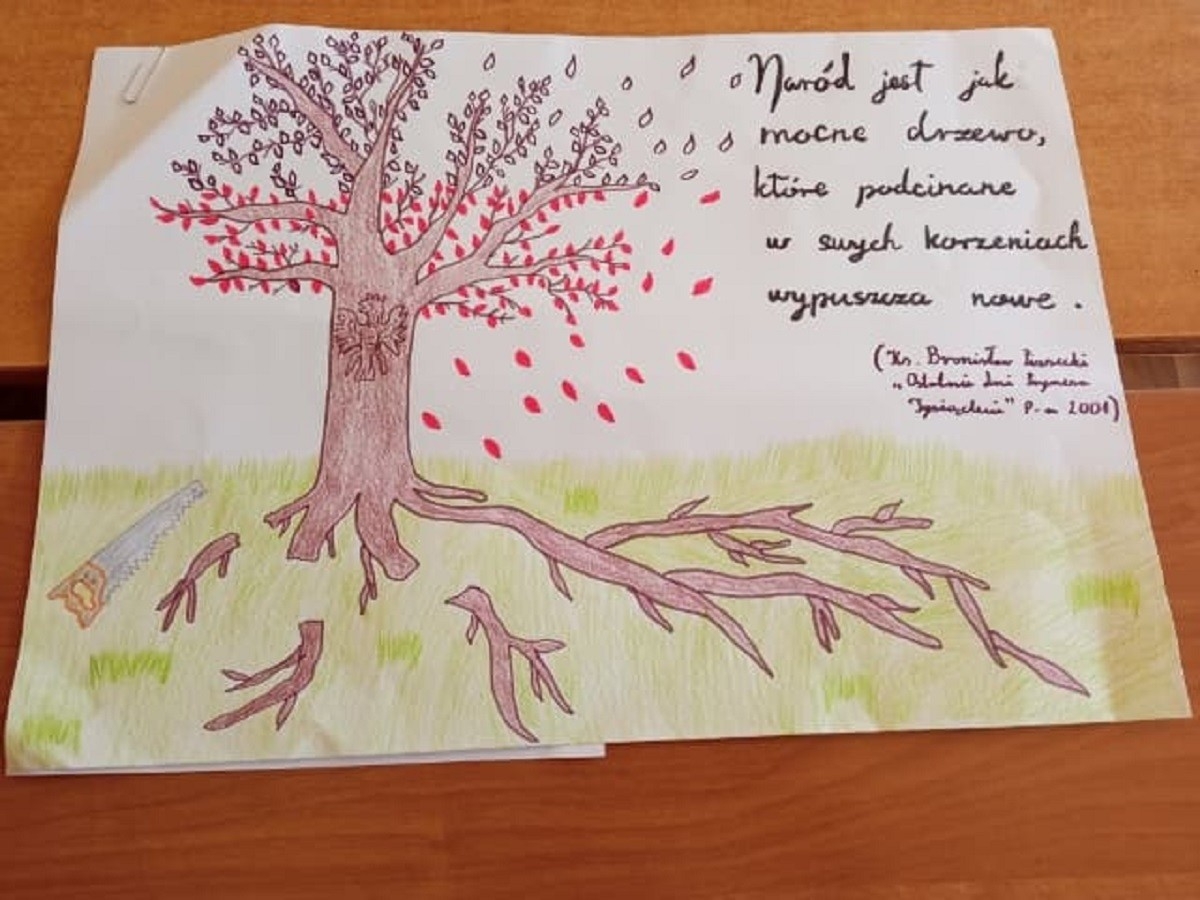 Naród jest jak
mocne drzewo,
które podcinane
w swych korzeniach
wypuszcza nowe.
(Ks. Bronisław Piasecki
„Ostatnie dni Prymasa
Tysiąclecia" P-ń 2001)